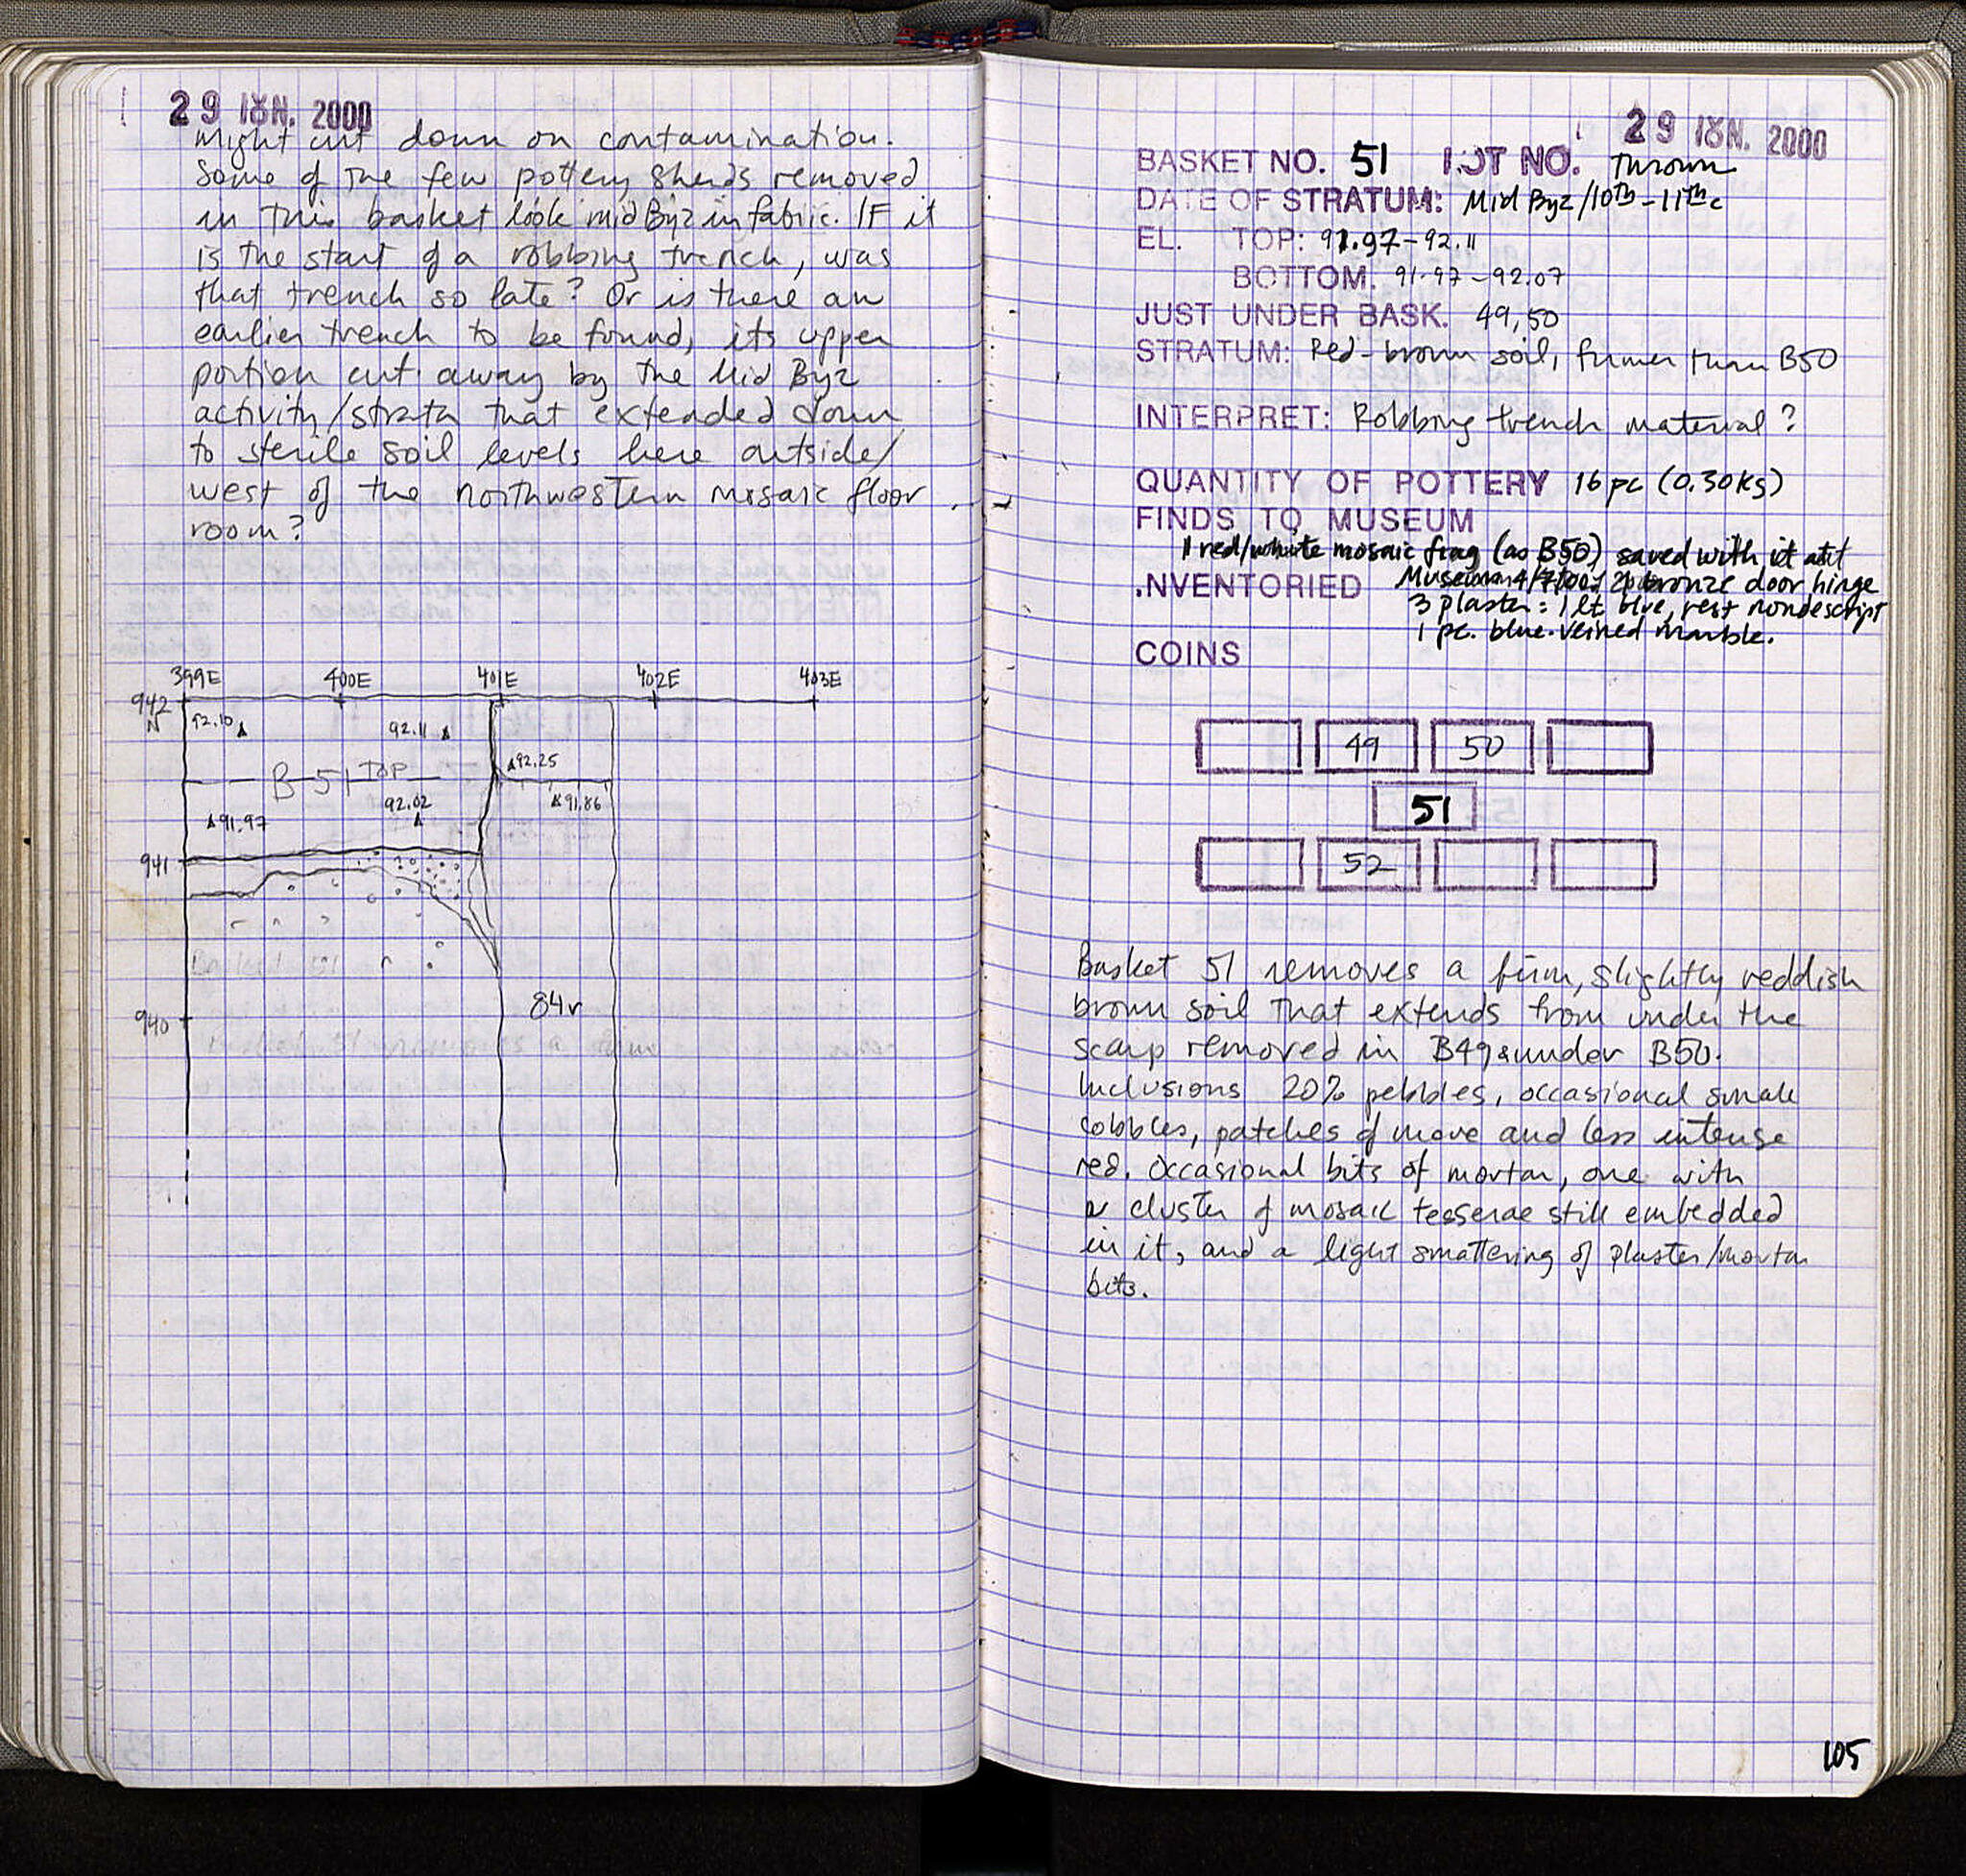 29 ΙΟΥΝ. 2000
might cut down on contamination.
Some of the few pottery sherds removed
in this basket look mid Byz in fabric. IF it
is the start of a robbing trench, was
that trench so late? Or is there an
earlier trench to be found, its upper
portion cut away by the Mid Byz
activity/strata that extended down
to sterile soil levels here outside/
west of the northwestern mosaic floor
room?
399E 400E 401E 402E 403E
942
N
92.10
92.11
92.25
B-51 TOP
92.02
91.86
91.97
941
Basket 51
84r
940
29 ΙΟΥΝ. 2000
BASKET NO. 51 LOT NO. Thrown
DATE OF STRATUM: Mid Byz/10th-11th c
EL. TOP: 91.97-92.11
BOTTOM. 91.97-92.07
JUST UNDER BASK. 49,50
STRATUM: Red-brown soil, firmer than B50
INTERPRET: Robbing trench material?
QUANTITY OF POTTERY 16 pc (0.30 kg)
FINDS TO MUSEUM
1 red/white mosaic frag (as B50) saved with it at
INVENTORIED Museum 4/7/00; bronze door hinge
3 plaster: 1 lt. blue, rest nondescript
1 pc. blue-veined marble.
COINS
49 50
51
52
Basket 51 removes a firm, slightly reddish
brown soil that extends from under the
scarp removed in B49 & under B50.
Inclusions 20% pebbles, occasional small
cobbles, patches of more and less intense
red. Occasional bits of mortar, one with
a cluster of mosaic tesserae still embedded
in it, and a light smattering of plaster/mortar
bits.
105